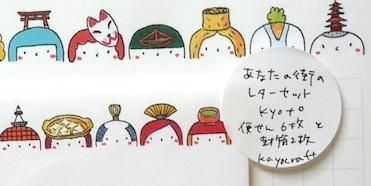 あなたの街の
レターセット
kyoto
便せん6枚と
封筒2枚
kayocraft